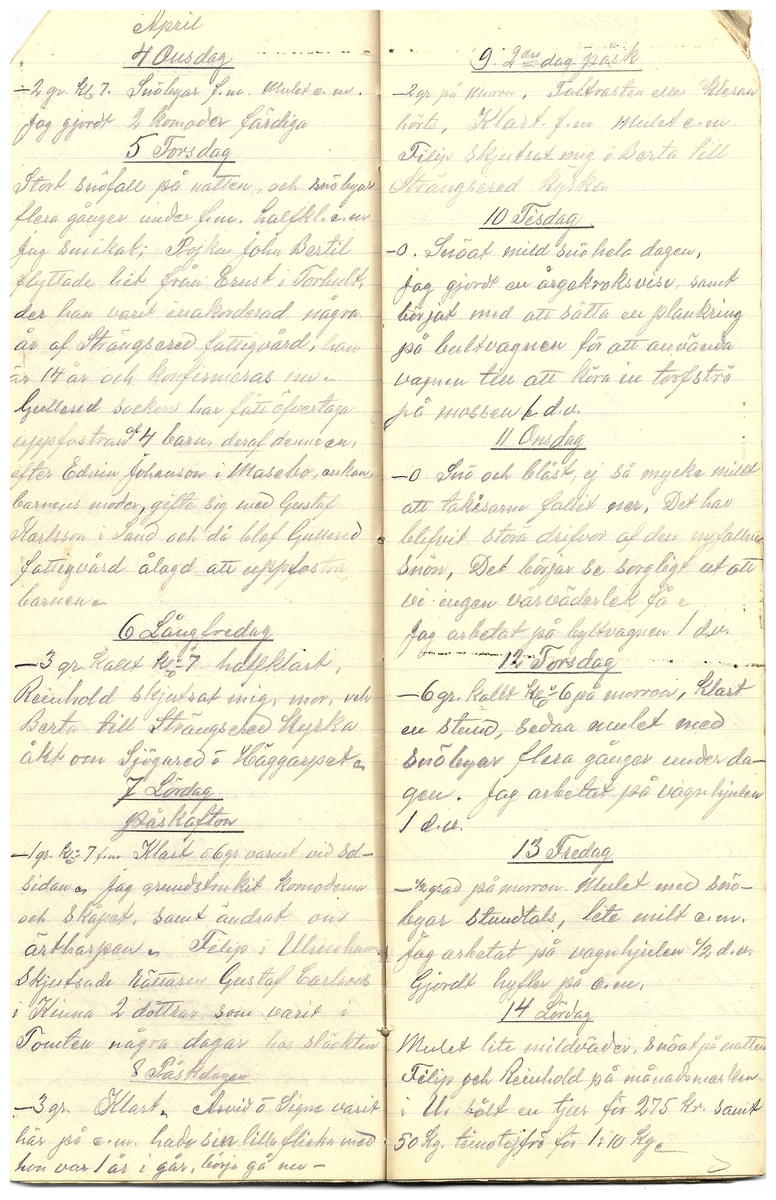 April
4 Onsdag
-2 gr. Kl 7. Snöbyar f.m. Mulet e.m.
Jag gjordt 2 komoder färdiga
5 Torsdag
Stort snöfall på natten, och snöbyar
flera gånger under f.m. halfkl. e.m
Jag snickat; Pojken John Bertil
flyttade hit från Ernst i Torhult,
der han varit inakorderad några
år af Strängsered fattigvård, han
är 14 år och konfirmeras nu.
Gullered socken har fått öfvertaga
uppfostran af 4 barn, deraf denne en,
efter Edvin Johanson i Masebo, enkan,
barnens moder, gifte sig med Gustaf
Karlsson i Sand och då blef Gullered
fattigvård ålagd att uppfostra
barnen.
6 Långfredag
-3 gr Kallt Kl 7 halfklart,
Reinhold skjutsat mig, mor, och
Berta till Strängsered Kyrka
åkt om Sjögared ö Häggarpet.
7 Lördag
påskafton
-1 gr. Kl 7 f.m Klart ö 6 gr varmt vid sol-
sidan. Jag grundstrukit komoderna
och skåpet, samt ändrat om
ärtharpan. Filip i Ulricehamn
skjutsade Gustaf Carlsons
i Kinna 2 döttrar som varit i
Tomten några dagar hos släkten
8 Påskdagen
-3 gr. Klart. Arvid ö Signe varit
här på e.m. hade sin lilla flicka med
hon var 1 år i går, börja gå nu -
9. 2dre dag påsk
-2 gr på morron, Taltrasten eller
hörts, Klart f.m Mulet e.m.
Filip skjutsat mig ö Berta till
Strängsered kyrka
10 Tisdag
-0. Snöat mild snö hela dagen,
Jag gjordt en samt
börjat med att sätta en plankring
på bultvagnen för att använda
vagnen till att köra in torfströ
på mossen 1 d.v.
11 Onsdag
-0 Snö och blåst, ej så mycke mildt
att taksnöarna fallet ner, Det har
blifvit stora drifvor af den nyfallna
snön, Det börjar se sorgligt ut att
vi ingen vårväderlek få.
Jag arbetat på bultvagnen 1 d.v.
12 Torsdag
-6 gr. kallt Kl 6 på morron, Klart
en stund, sedan mulet med
snöbyar flera gånger under da-
gen. Jag arbetat på vagnhjulen
1 d.v.
13 Fredag
-½ grad på morron. Mulet med snö-
byar stundtals, lite milt e.m.
Jag arbetat på vagnhjulen ½ d.v.
Gjordt hyflar på e.m.
14 Lördag
Mulet lite mildväder, snöat på natten
Filip och Reinhold på månadsmarken
i U. sålt en tjur för 275 kr. samt
50 Kg. timotejfrö för 1:10 Kg.